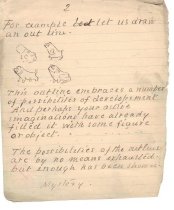 2
For example let us draw
an out line.
This outline embraces a number
of possibilities of development
And perhaps your active
imaginations have already
filled it with some figure
or object.
The possibilities of the outline
are by no means exhausted
but enough has been shown.
Mystery.